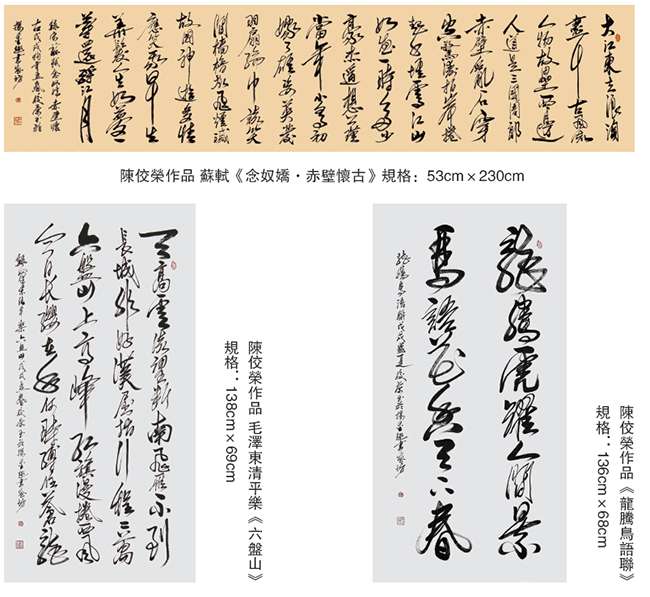 大江東去浪淘
盡千古風流
人物故壘西邊
人道是三國周郎
赤壁亂石穿
空驚濤拍岸捲
起千堆雪江山
如畫一時多少
豪傑遙想公瑾
當年小喬初
嫁了雄姿英發
羽扇綸巾談笑
間檣櫓灰飛煙滅
故國神遊多情
應笑我早生
華髮人生如夢一
尊還酹江月
陳佼榮作品 蘇軾《念奴嬌・赤壁懷古》規格：53cm×230cm
天高雲淡望斷南飛雁不到
長城非好漢屈指行程二萬
六盤山上高峰紅旗漫捲西風
今日長纓在手何時縛住蒼龍
陳佼榮作品 毛澤東清平樂《六盤山》
規格：138cm×69cm
龍騰虎躍人間景
鳥語花香天下春
陳佼榮作品《龍騰鳥語聯》
規格：136cm×68cm